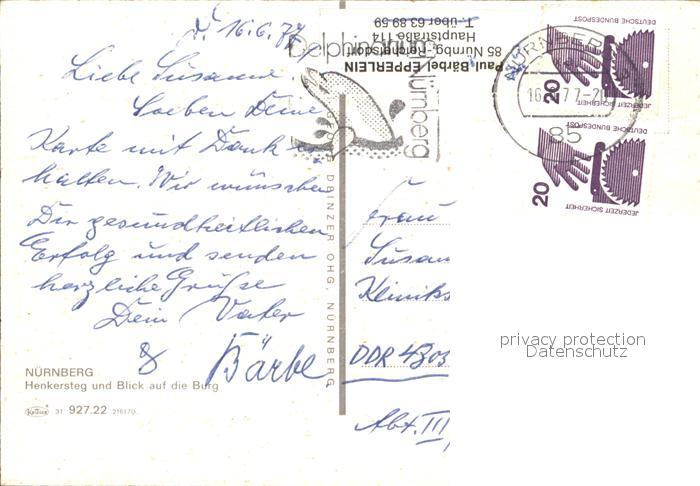 d. 16.6.77
Liebe Susanne
Soeben Deine
Karte mit Dank er
halten. Wir wünschen
Dir gesundheitlichen
Erfolg und senden
herzliche Grüße
Dein Vater
&
Bärbe
NÜRNBERG
Henkersteg und Blick auf die Burg
Krüger 31 927.22 216170
DRINZER OHG. NÜRNBERG
Paul-Bärbel EPPERLEIN
85 Nürnbg.-Reichelsdorf
Hauptstraße
T. über 63 89 59
Nürnberg
NÜRNBERG
16
77
85
DEUTSCHE BUNDESPOST
20
JEDERZEIT SICHERHEIT
DEUTSCHE BUNDESPOST
20
JEDERZEIT SICHERHEIT
Frau
Susan
Kliniks
DDR
Abt. III,
privacy protection
Datenschutz